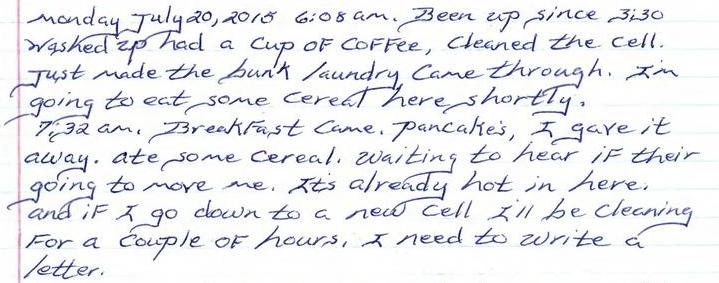 Monday July 20, 2015 6:08 am. Been up since 3:30
Washed up had a cup of coffee, cleaned the cell.
Just made the bunk laundry came through. I'm
going to eat some cereal here shortly.
7:32 am. Breakfast came. pancakes, I gave it
away. ate some cereal. waiting to hear if their
going to move me. Its already hot in here.
and if I go down to a new cell I'll be cleaning
for a couple of hours. I need to write a
letter.